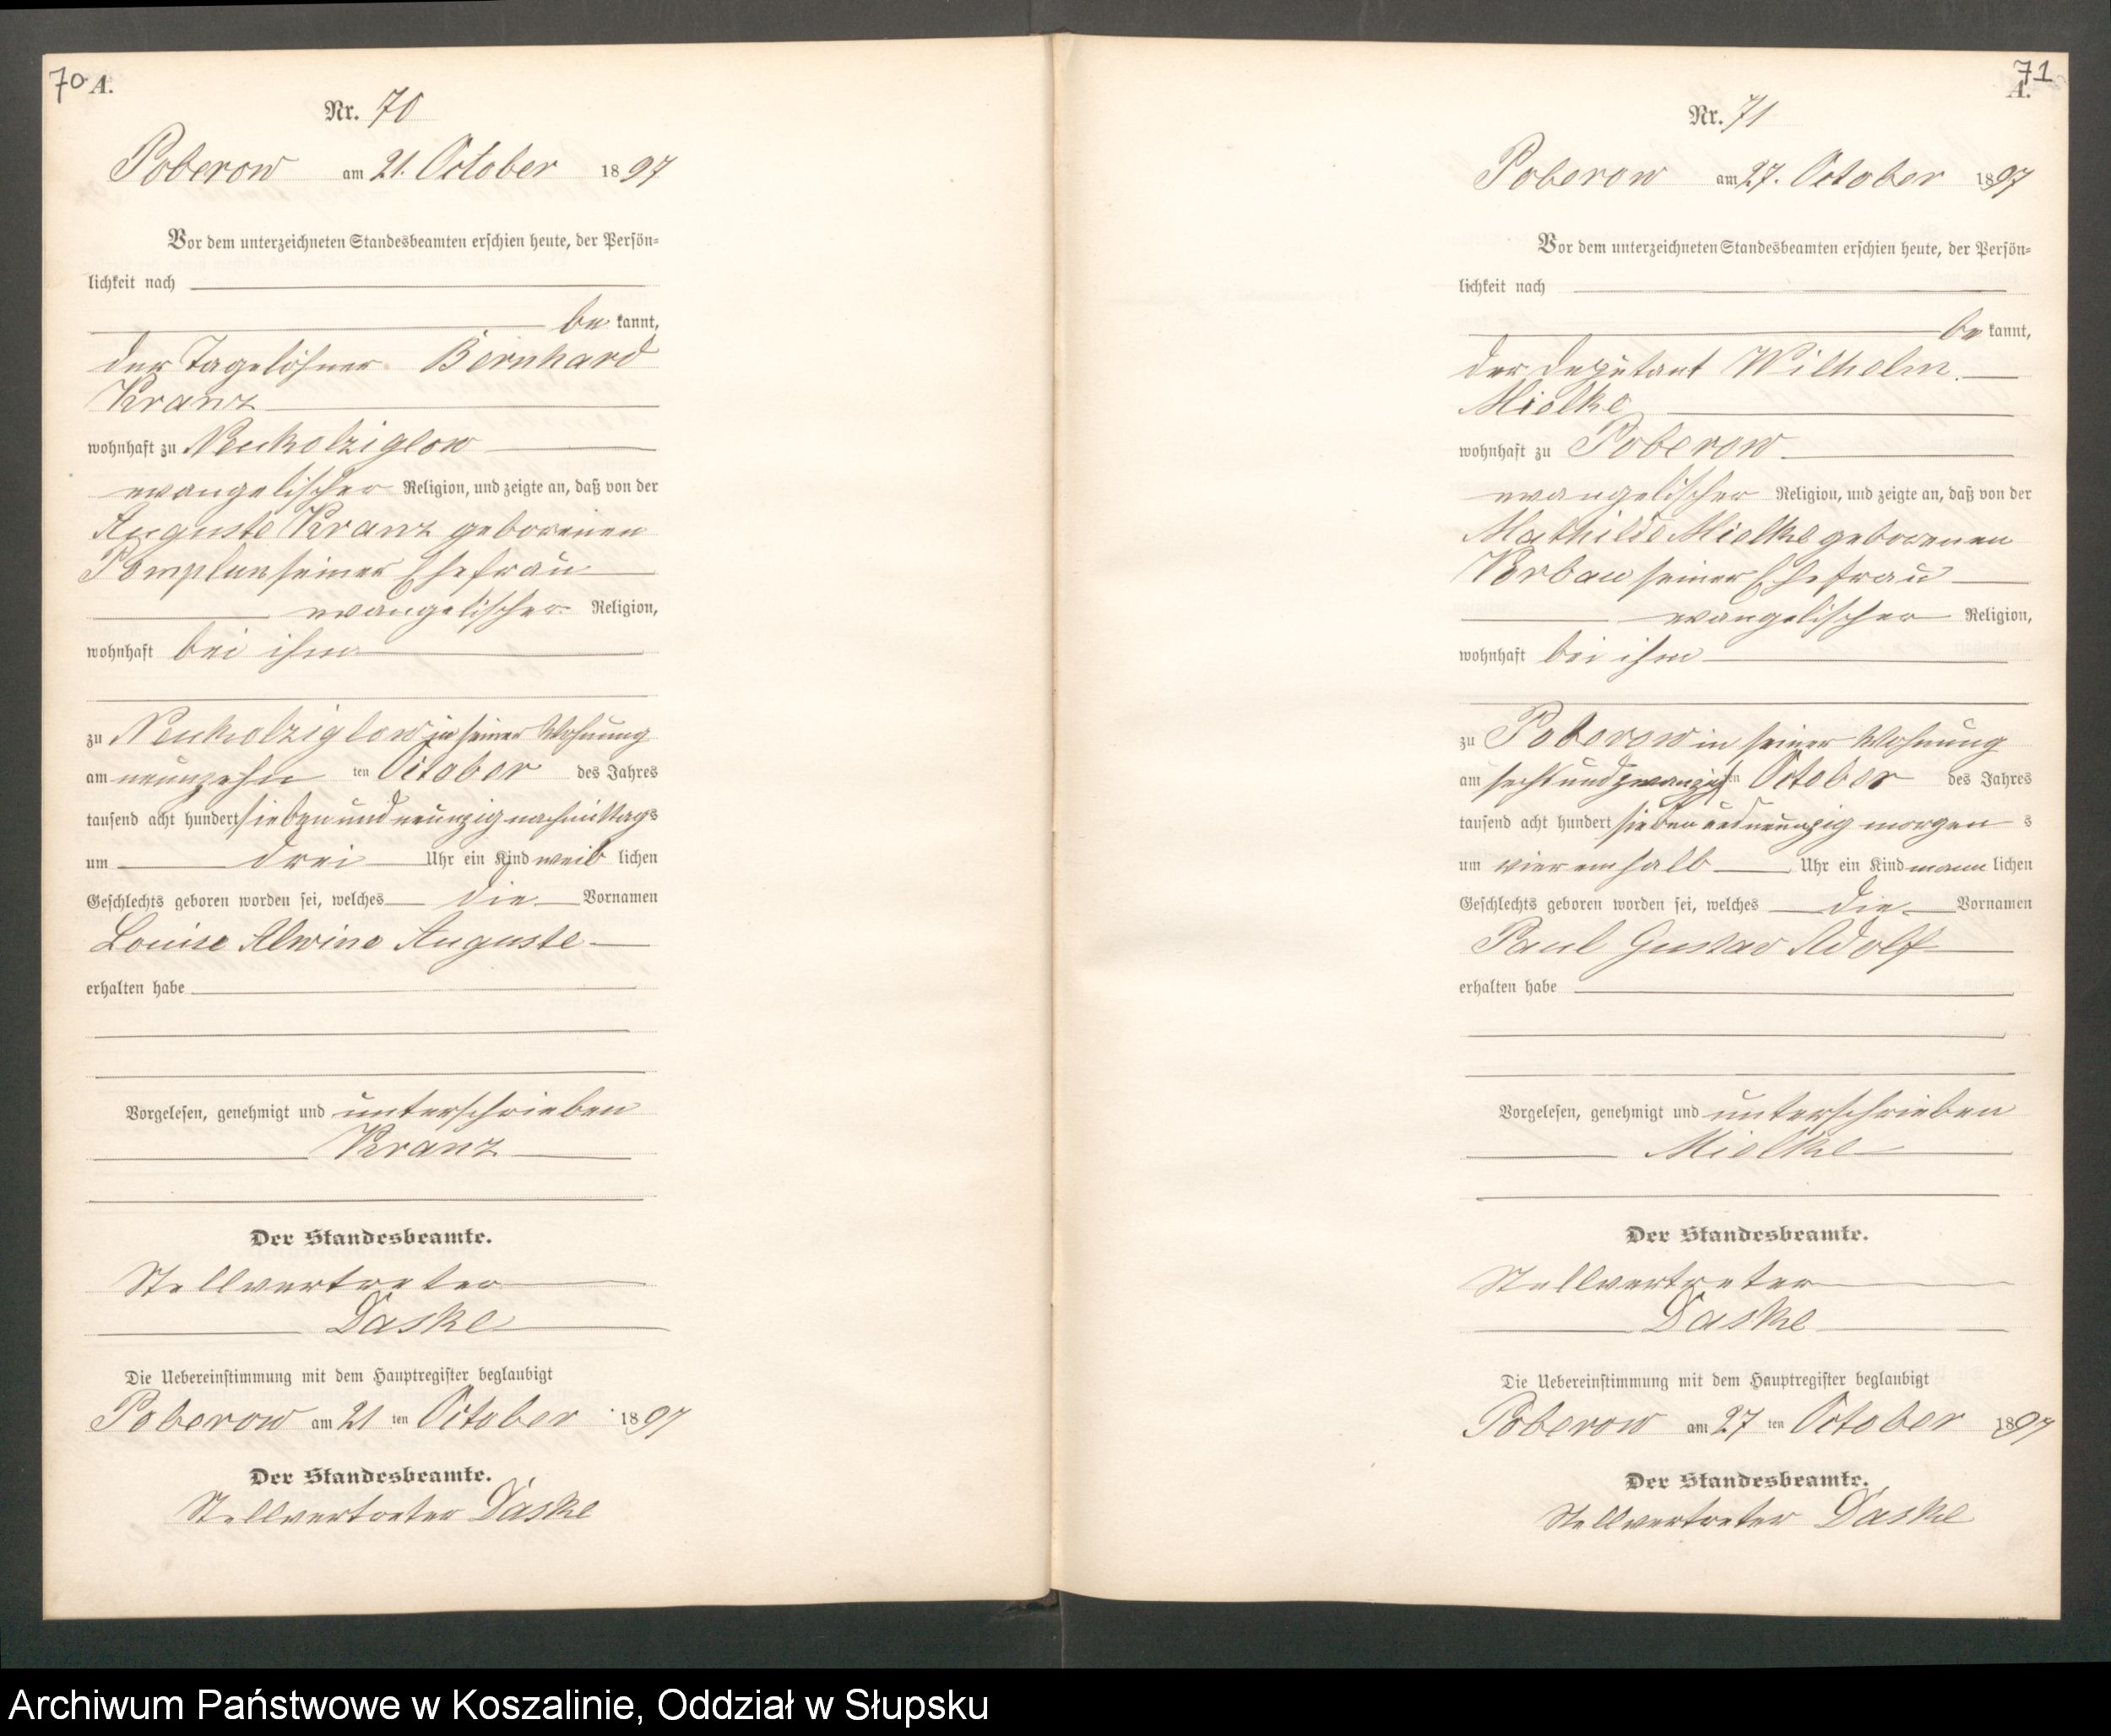 70 A.
Nr. 70
Poberow am 21. October 1897
Vor dem unterzeichneten Standesbeamten erschien heute, der Persön-
lichkeit nach
be kannt,
der Tagelöhner Bernhard
Kranz
wohnhaft zu Neukolziglow
evangelischer Religion, und zeigte an, daß von der
Auguste Kranz geborenen
Pomplun seiner Ehefrau
evangelischer Religion,
wohnhaft bei ihm
zu Neukolziglow in seiner Wohnung
am neunzehn ten October des Jahres
tausend acht hundert sieben und neunzig nachmittags
um drei Uhr ein Kind weib lichen
Geschlechts geboren worden sei, welches die Vornamen
Louise Alwine Auguste
erhalten habe
Vorgelesen, genehmigt und unterschrieben
Kranz
Der Standesbeamte.
Stellvertreter
Daske
Die Uebereinstimmung mit dem Hauptregister beglaubigt
Poberow am 21 ten October 1897
Der Standesbeamte.
Stellvertreter Daske
71
A.
Nr. 71
Poberow am 27. October 1897
Vor dem unterzeichneten Standesbeamten erschien heute, der Persön-
lichkeit nach
be kannt,
der Deputant Wilhelm
Mielke
wohnhaft zu Poberow
evangelischer Religion, und zeigte an, daß von der
Mathilde Mielke geborenen
Korbau seiner Ehefrau
evangelischer Religion,
wohnhaft bei ihm
zu Poberow in seiner Wohnung
am sechsundzwanzigsten October des Jahres
tausend acht hundert sieben und neunzig morgen s
um vier einhalb Uhr ein Kind männ lichen
Geschlechts geboren worden sei, welches die Vornamen
Paul Gustav Adolf
erhalten habe
Vorgelesen, genehmigt und unterschrieben
Mielke
Der Standesbeamte.
Stellvertreter
Daske
Die Uebereinstimmung mit dem Hauptregister beglaubigt
Poberow am 27 ten October 1897
Der Standesbeamte.
Stellvertreter Daske
Archiwum Państwowe w Koszalinie, Oddział w Słupsku